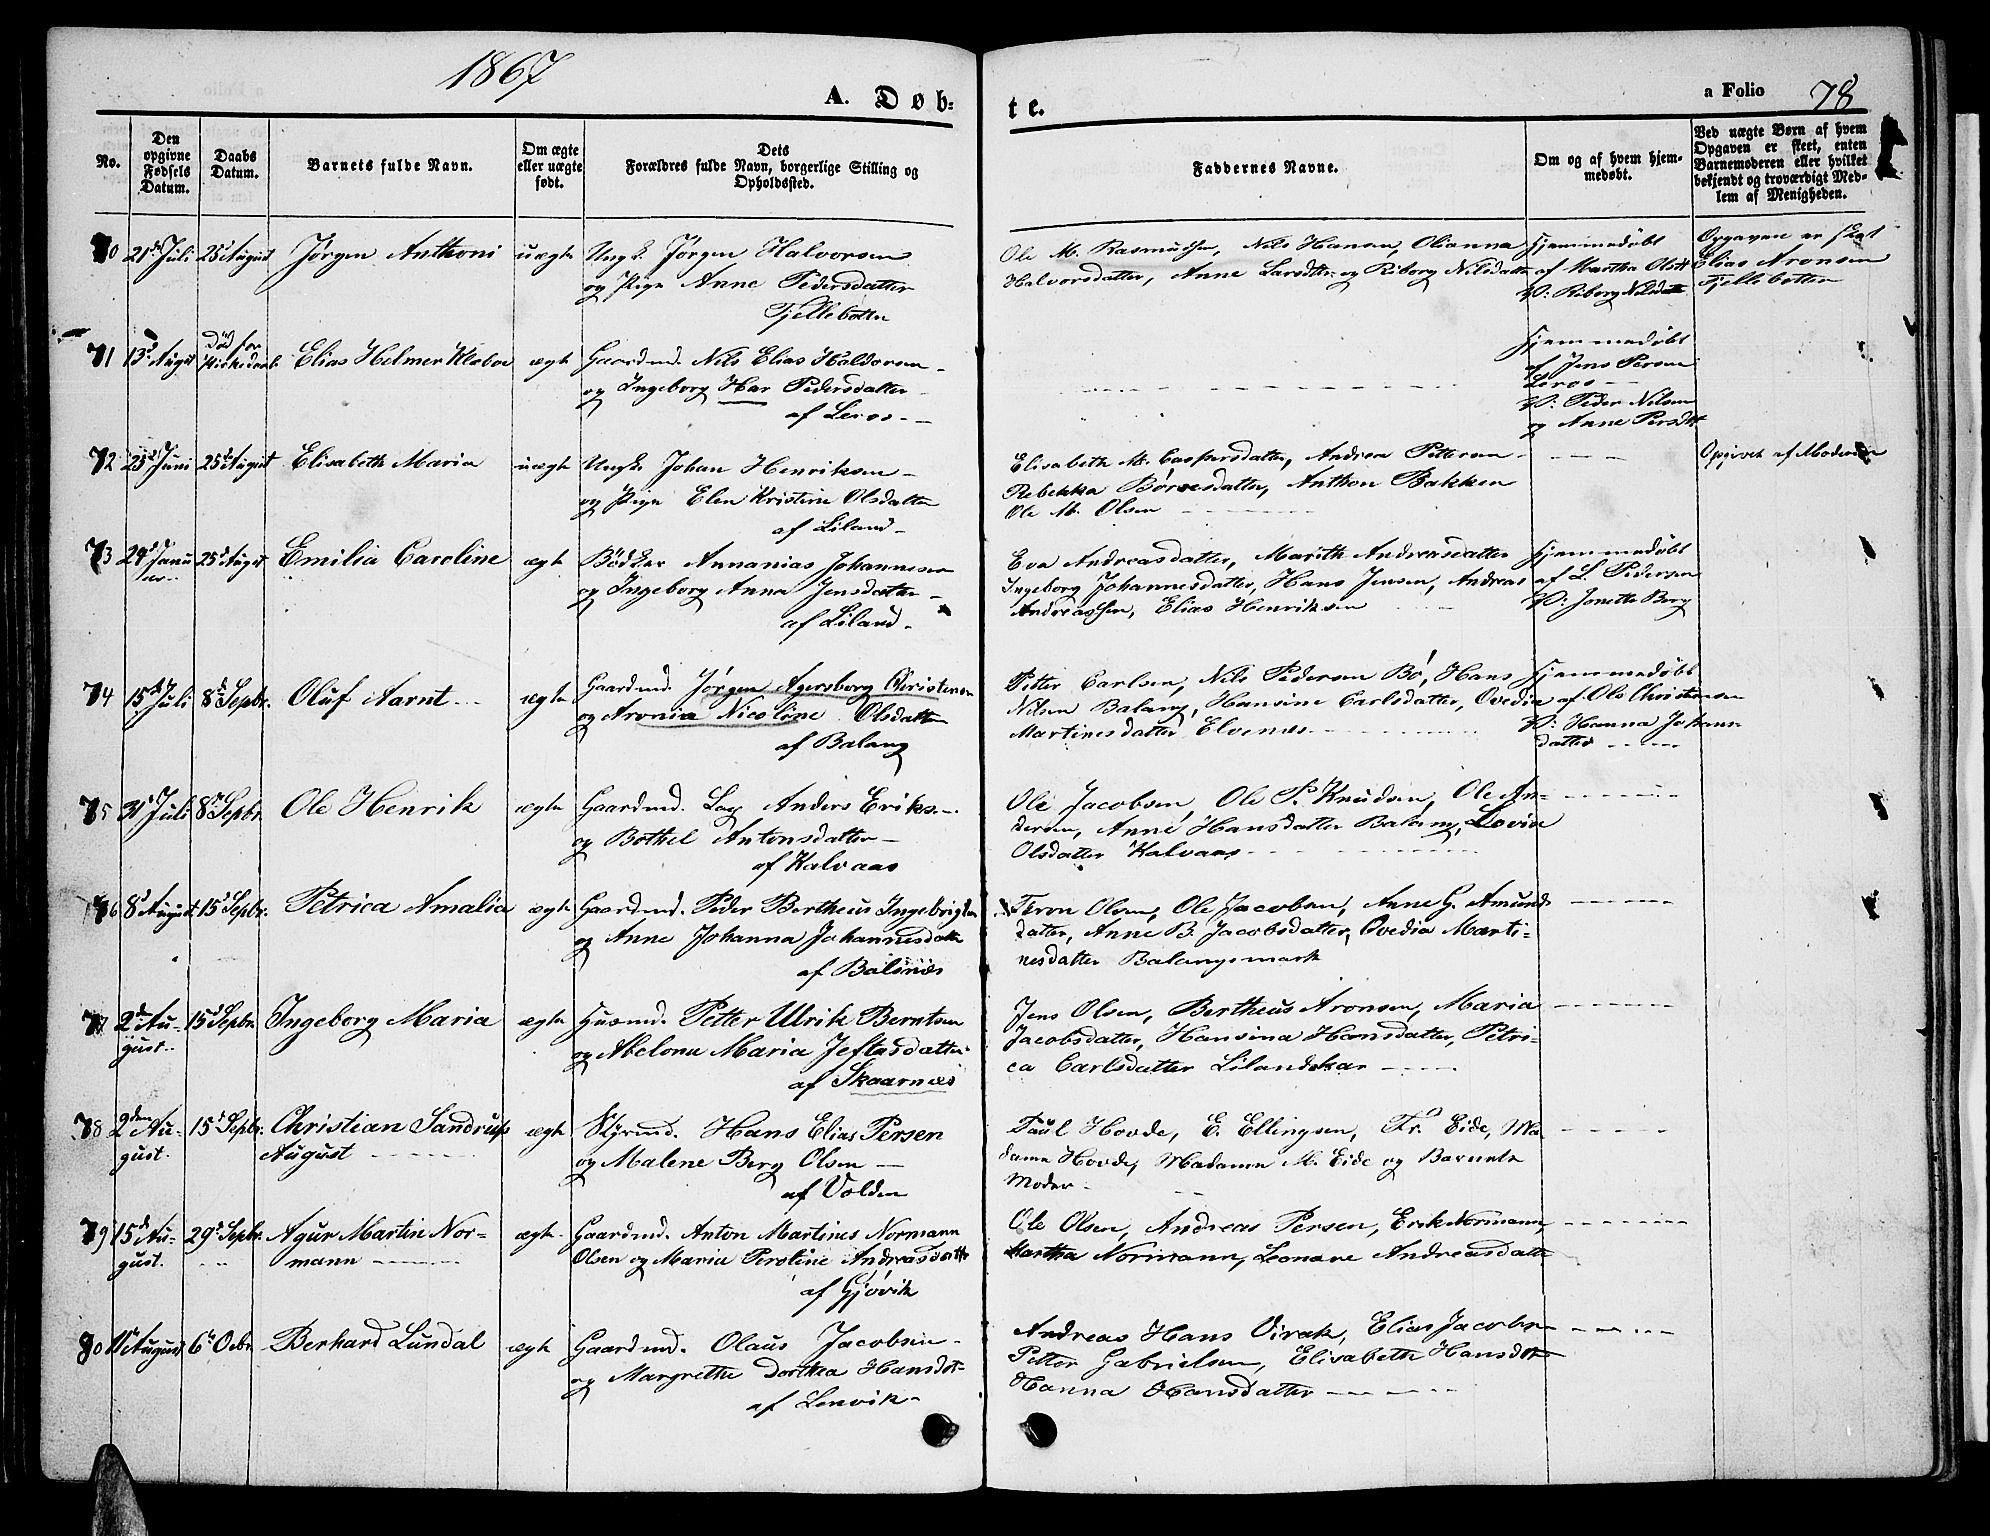 1867
A. Døb-
te.
a Folio 78
No.
Den opgivne Fødsels Datum.
Daabs Datum.
Barnets fulde Navn.
Om ægte eller uægte født.
Dets Forældres fulde Navn, borgerlige Stilling og Opholdssted.
Faddernes Navne.
Om og af hvem hjem-
medøbt.
Ved uægte Børn af hvem
Opgaven er skeet, enten
Barnemoderen eller hvilket
bekjendt og troværdigt Med-
lem af Menigheden.
70 21de Juli 25 August Jørgen Anthoni uægte Ungk. Jørgen Halvorsen
og Pige Anne Pedersdatter
Fjellebotten
Ole M. Rasmussen, Nils Hansen, Olianna
Halvorsdatter, Anne Larsdtr og Riborg Nilsdatter
Hjemmedøbt
af Martha Olsdt
V: Riborg Nilsdat
Opgaven er skeet
Elias Aronsen
Fjellebotten
71 13 August Død før Kirkedaab Elias Helmer Klæboe ægte Gaardmd. Nils Elias Haldorsen
og Ingeborg Har Pedersdatter
af Leros
Hjemmedøbt
af Jens Persen
Leros
V: Peder Nilsen
og Anne Persdt
72 23 Juni 25 August Elisabeth Maria uægte Ungk. Johan Henriksen
og Pige Elen Kristine Olsdatter
af Liland
Elisabeth M. Caspersdatter, Andrea Petersen
Rebekka Børresdatter, Anthon Bakken
Ole M. Olsen
Opgivet af Moderen
73 29 Janu
ar 25 August Emilia Caroline ægte Bødker Annanias Johannesen
og Ingeborg Anna Jensdatter
af Liland
Eva Andreasdatter, Marith Andreasdatter
Ingeborg Johannesdatter, Hans Jensen, Andreas
Andreassen, Elias Henriksen
Hjemmedøbt
af L. Pedersen
V: Jonette Berg
74 15 Juli 8 Sepbr. Oluf Aarnt ægte Gaardmd. Jørgen Agersborg Christensen
og Aronia Nicoline Olsdatter
af Balang
Petter Carlsen, Nils Pedersen Bö, Hans
Nilsen Balang, Hansine Carlsdatter, Ovedia
Martinesdatter Elvenes
Hjemmedøbt
af Ole Christensen
V: Hanna Johans
datter
75 31 Juli 8 Sepbr. Ole Henrik ægte Gaardmd. Lag Anders Eriks.
og Bothel Antonsdatter
af Kalvaas
Ole Jacobsen, Ole P. Knudsen, Ole An-
dersen, Anne Hansdatter Balang, Lovise
Olsdatter Kalvaas
76 8 August 15 Sepbr. Petrica Amalia ægte Gaardmd. Peder Bertheus Ingebrigtsen
og Anne Johanna Johannesdatter
af Balsnæs
Aron Olsen, Ole Jacobsen, Anne G. Amunds
datter, Anne B. Jacobsdatter, Ovedia Marti-
nesdatter Balangsmark
77 2 Au-
gust 15 Sepbr. Ingeborg Maria ægte Husmd. Petter Ulrik Berntsen
og Abelone Maria Jeftasdatter
af Skaarnæs
Jens Olsen, Bertheus Aronsen, Maria
Jacobsdatter, Hansina Hansdatter, Petri-
ca Carlsdatter Lilandskar
78 2den Au-
gust 15 Sepbr. Christian Sandrup
August ægte Styrmd. Hans Elias Persen
og Malene Berg Olsen
af Volden
Paul Hovde, E. Ellingsen, Fr. Eide, Ma-
dame Hovde, Madame M. Eide og Barnets
Moder
79 15 Au-
gust. 29 Sepbr. Agur Martin Nor-
mann ægte Gaardmd. Anton Martines Normann
Olsen og Maria Peroline Andreasdatter
af Gjøvik
Ole Olsen, Andreas Persen, Erik Normann,
Martha Normann, Leonare Andreasdatter
80 11 August 6 Ocbr. Berhard Lundal ægte Gaardmd. Olaus Jacobsen
og Margrethe Dorthea Hansdt
af Lenvik
Andreas Hans Virak, Elias Jacobsen
Petter Gabrielsen, Elisabeth Hansdt
Hanna Hansdatter